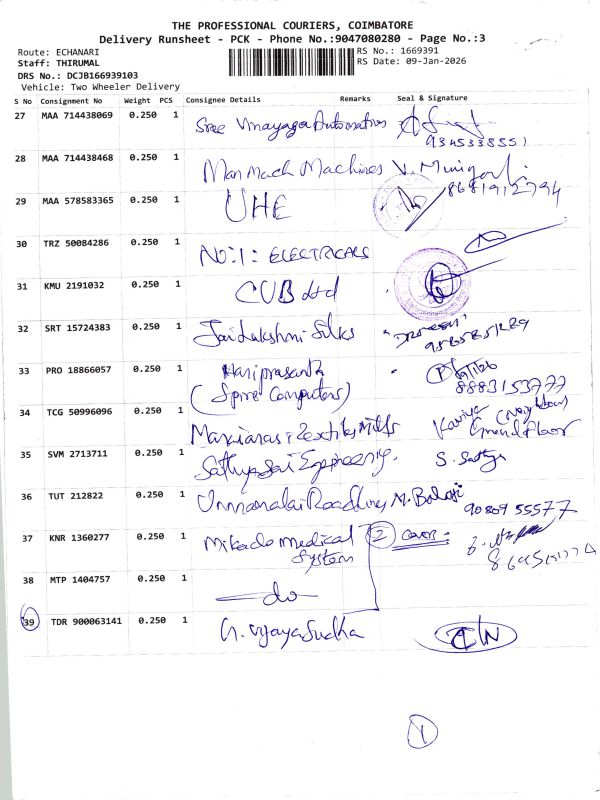 THE PROFESSIONAL COURIERS, COIMBATORE
Delivery Runsheet - PCK - Phone No.:9047080280 - Page No.:3
Route: ECHANARI
Staff: THIRUMAL
DRS No.: DCJB166939103
Vehicle: Two Wheeler Delivery
RS No.: 1669391
RS Date: 09-Jan-2026
S No Consignment No Weight PCS Consignee Details Remarks Seal & Signature
27 MAA 714438069 0.250 1 Sree Vinayaga Automation
9345338551
28 MAA 714438468 0.250 1 Man Mach Machines V.
8681912794
29 MAA 578583365 0.250 1 UHE
30 TRZ 50084286 0.250 1 NO:1: ELECTRICALS
31 KMU 2191032 0.250 1 CUB Ltd
32 SRT 15724383 0.250 1 Jai Lakshmi Silks
33 PRO 18866057 0.250 1 Hariprasanth
(Spire Computers) 8883153777
34 TCG 50996096 0.250 1 Textiles Mills Kaviya (Neighbour)
Ground floor
35 SVM 2713711 0.250 1 Sathya Sai Engineering. S. Sathya
36 TUT 212822 0.250 1 Unnamalai Roadlines M. Balaji
90809 55577
37 KNR 1360277 0.250 1 Mikado Medical System (2) cover
38 MTP 1404757 0.250 1 do
39 TDR 900063141 0.250 1 G. Vijaya Sudha
1